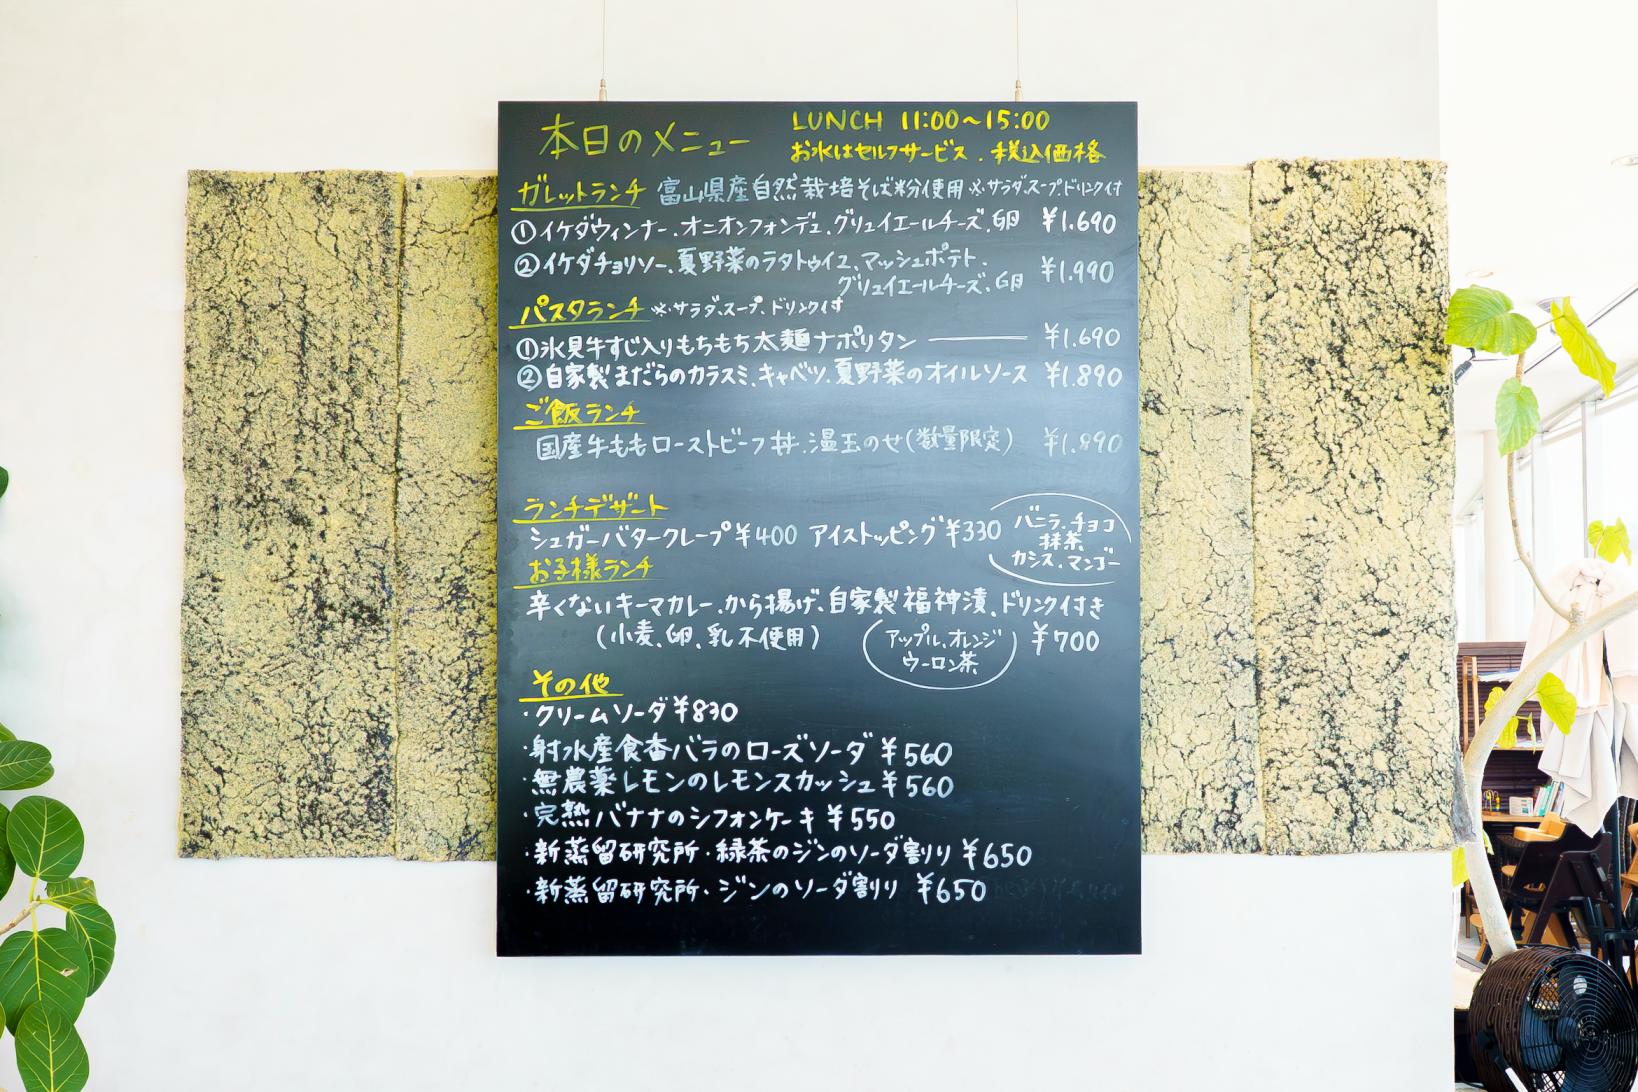 本日のメニュー
LUNCH 11:00〜15:00
お水はセルフサービス．税込価格
ガレットランチ 富山県産自然栽培そば粉使用 ※サラダ、スープ、ドリンク付
①イケダウィンナー、オニオンフォンデュ、グリュイエールチーズ、卵 ¥1.690
②イケダチョリソー、夏野菜のラタトゥイユ、マッシュポテト、
グリュイエールチーズ、卵 ¥1.990
パスタランチ ※サラダ、スープ、ドリンク付
①氷見牛すじ入りもちもち太麺ナポリタン ── ¥1.690
②自家製まだらのカラスミ、キャベツ、夏野菜のオイルソース ¥1.890
ご飯ランチ
国産牛ももローストビーフ丼、温玉のせ(数量限定) ¥1.890
ランチデザート
シュガーバタークレープ¥400 アイストッピング¥330
バニラ、チョコ
抹茶
カシス、マンゴー
お子様ランチ
辛くないキーマカレー、から揚げ、自家製福神漬、ドリンク付き
(小麦、卵、乳不使用)
アップル、オレンジ
ウーロン茶
¥700
その他
・クリームソーダ¥830
・射水産食香バラのローズソーダ ¥560
・無農薬レモンのレモンスカッシュ¥560
・完熟バナナのシフォンケーキ ¥550
・新蒸留研究所・緑茶のジンのソーダ割り ¥650
・新蒸留研究所・ジンのソーダ割り ¥650